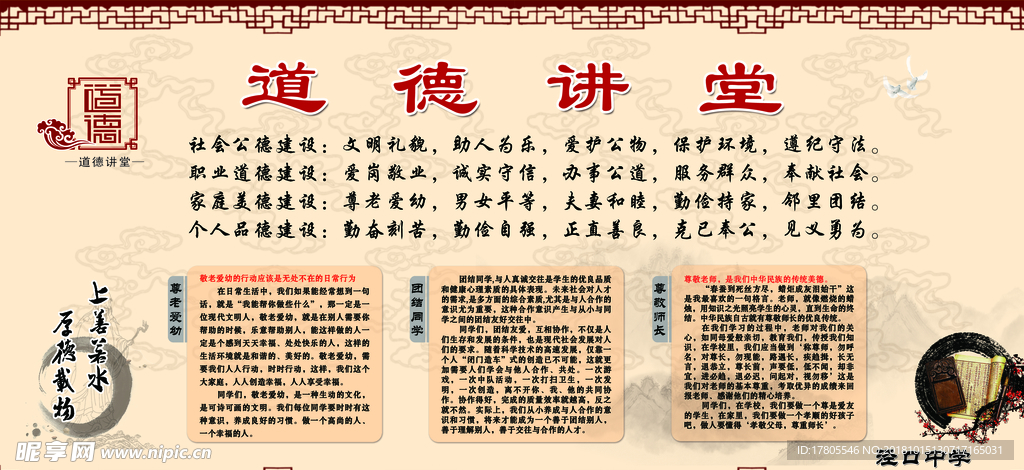 道德讲堂
道德
道德讲堂
社会公德建设：文明礼貌，助人为乐，爱护公物，保护环境，遵纪守法。
职业道德建设：爱岗敬业，诚实守信，办事公道，服务群众，奉献社会。
家庭美德建设：尊老爱幼，男女平等，夫妻和睦，勤俭持家，邻里团结。
个人品德建设：勤奋刻苦，勤俭自强，正直善良，克已奉公，见义勇为。
上善若水
厚德载物
尊老爱幼
敬老爱幼的行动应该是无处不在的日常行为
在日常生活中，我们如果能经常想到一句
话，就是“我能帮你做些什么”，那一定是一
位现代文明人，敬老爱幼，就是在别人需要你
帮助的时候，乐意帮助别人，能这样做的人一
定是个感到天天幸福、处处快乐的人，这样的
生活环境就是和谐的、美好的。敬老爱幼，需
要我们人人行动，时时行动，这样，我们这个
大家庭，人人创造幸福，人人享受幸福。
同学们，敬老爱幼，是一种生动的文化，
是可诗可画的文明。我们每位同学要时时有这
种意识，养成良好的习惯。做一个高尚的人、
一个幸福的人。
团结同学
团结同学，与人真诚交往是学生的优良品质
和健康心理素质的具体表现。未来社会对人才
的需求，是多方面的综合素质，尤其是与人合作的
意识尤为重要，这种合作意识产生与从小与同
学之间的团结友好交往中。
同学们，团结友爱，互相协作，不仅是人
们生存和发展的条件，也是现代社会发展对人
们的要求。随着科学技术的高速发展，仅靠一
个人“闭门造车”式的创造已不可能，这就更
加需要人们学会与他人合作、共处。一次游
戏，一次中队活动，一次打扫卫生，一次发
明，一次创造，离不开你、我、他的共同协
作。协作得好，完成的质量效率就越高，反之
就不然。实际上，我们从小养成与人合作的意
识和习惯，将来才能成为一个善于团结别人，
善于理解别人，善于交往与合作的人才。
尊敬师长
尊敬老师，是我们中华民族的传统美德。
“春蚕到死丝方尽，蜡炬成灰泪始干”这
是我最喜欢的一句格言。老师，就像燃烧的蜡
烛，用知识之光照亮学生的心灵，直到生命的终
结。中华民族自古就有尊敬师长的优良传统。
在我们学习的过程中，老师对我们的关
心，如同母爱般亲切，教育我们，传授我们知
识，在学校里，我们应当做到“称尊师，勿呼
名，对尊长，勿现能，路遇长，疾趋揖，长无
言，退恭立，尊长前，声要低，低不闻，却非
宜，进必趋，退必迟，问起对，视勿移”这是
我们对老师的基本尊重，考取优异的成绩来回
报老师，感谢他们的精心培养。
同学们，在学校，我们要做一个尊是爱友
的学生，在家里，我们要做一个孝顺的好孩子
吧，做人要懂得‘孝敬父母，尊重师长’。
泾口中学
昵享网 www.nipic.cn
ID:17805546 NO:20181015130717165031